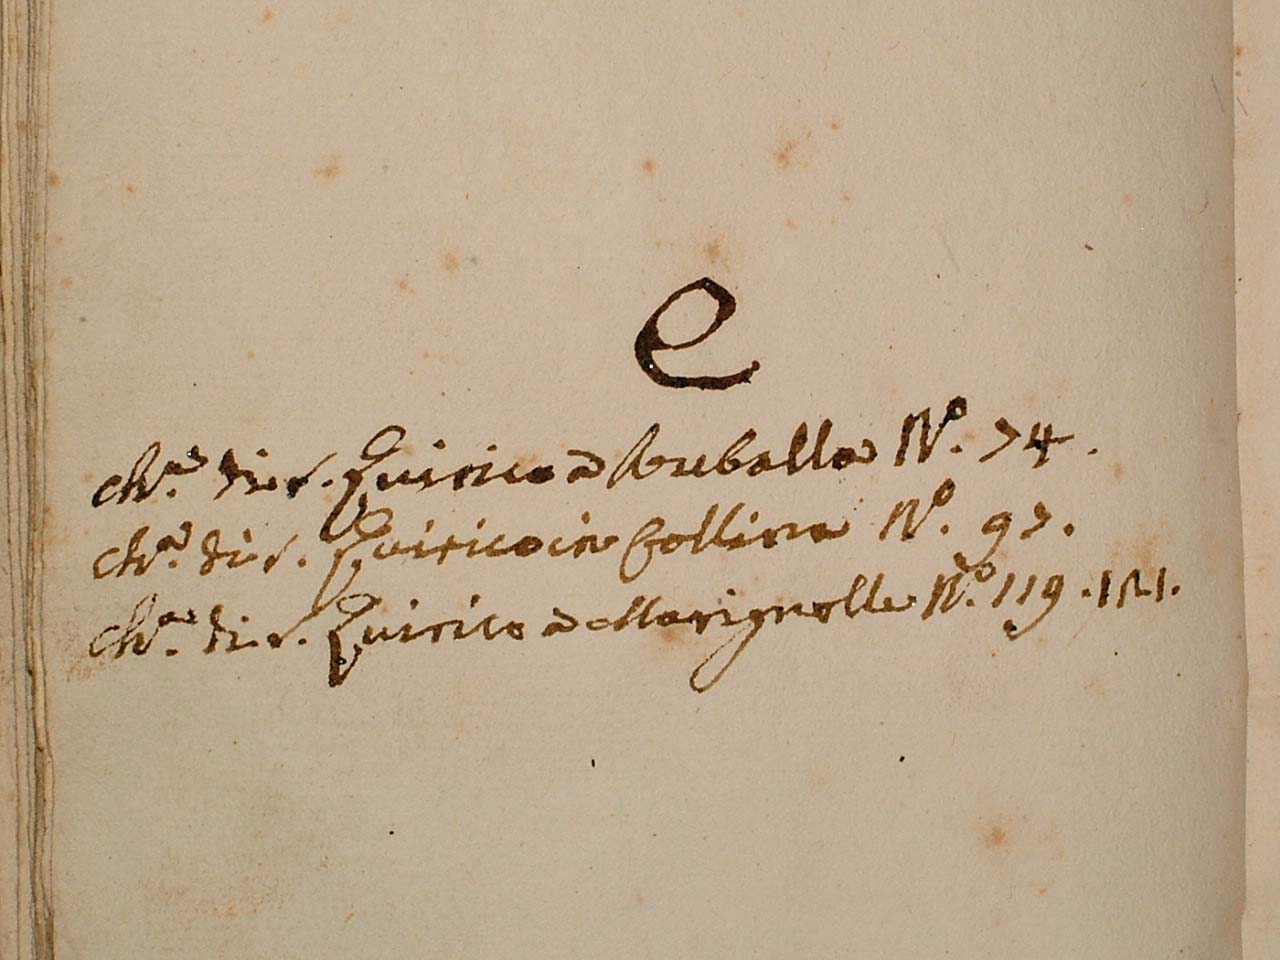 e
Ch.ª di S. Quirico a Ruballa N.º 74.
Ch.ª di S. Quirico in Collina N.º 97.
Ch.ª di S. Quirico a Marignolle N.º 119. 121.